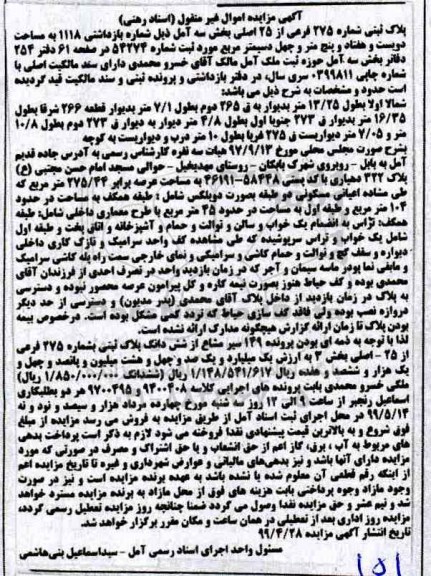 آگهی مزایده اموال غیر منقول (اسناد رهنی)
پلاک ثبتی شماره ۲۷۵ فرعی از ۲۵ اصلی بخش سه آمل ذیل شماره بازداشتی ۱۱۱۸ به مساحت
دویست و هفتاد و پنج متر و چهل دسیمتر مربع مورد ثبت شماره ۵۴۲۷۳ در صفحه ۶۱ دفتر ۲۵۴
دفاتر بخش سه آمل حوزه ثبت ملک آمل مالک آقای خسرو محمدی دارای سند مالکیت اصلی با
شماره چاپی ۰۳۹۹۸۱۱ سری سال، در دفتر بازداشتی و پرونده ثبتی و سند مالکیت قید گردیده
است حدود و مشخصات به شرح ذیل می باشد:
شمالا اولا بطول ۱۳/۲۵ متر بدیوار به ق ۲۶۵ دوم بطول ۷/۱ متر بدیوار قطعه ۲۶۶ شرقا بطول
۱۶/۳۵ متر بدیوار ق ۲۷۳ جنوبا اول بطول ۴/۸ متر دیوار به دیوار ق ۲۷۳ دوم بطول ۱۰/۸
متر و ۷/۰۵ متر دیواریست ق ۲۷۵ غربا بطول ۱۰ متر درب و دیواریست به کوچه
بشرح صورت مجلس محلی مورخ ۹۷/۹/۱۳ هیات سه نفره کارشناس رسمی به آدرس جاده قدیم
آمل به بابل - روبروی شهرک بابکان - روستای مهدیخیل - حوالی مسجد امام حسن مجتبی (ع)
پلاک ۳۲۲ دهیاری با کد پستی ۵۸۴۴۸-۴۶۱۹۱ به مساحت عرصه برابر ۲۷۵/۴۴ متر مربع که
طی مشاده اعیانی مسکونی دو طبقه بصورت دوبلکس شامل : طبقه همکف به مساحت در حدود
۱۰۴ متر مربع و طبقه اول به مساحت در حدود ۴۵ متر مربع با طرح معماری داخلی شامل: طبقه
همکف: تراس به انضمام یک خواب و سالن و توالت و حمام و آشپزخانه و اتاق پخت و طبقه اول
شامل یک خواب و تراس سرپوشیده که طی مشاهده کف واحد سرامیک و نازک کاری داخلی
دیواره و سقف گچ و توالت و حمام کاشی و سرامیکی و نمای خارجی سمت راه پله کاشی سرامیک
و مابقی نما پودر ماسه سیمان و آجر که در زمان بازدید واحد در تصرف احدی از فرزندان آقای
محمدی بوده و کف حیاط هنوز بصورت نیمه کاره و کل پیرامون عرصه محصور نبوده و دسترسی
به پلاک در زمان بازدید از داخل پلاک آقای محمدی (پدر مدیون) و دسترسی از حد دیگر
دروازه نصب بوده ولی فاقد کف سازی حیاط که تردد کمی مشکل بوده است. درخصوص بیمه
بودن پلاک تا زمان ارائه گزارش هیچگونه مدارک ارائه نشده است.
لذا با توجه به ذمه ای بودن پرونده ۱۴۹ سیر مشاع از شش دانگ پلاک ثبتی بشماره ۲۷۵ فرعی
از ۲۵ - اصلی بخش ۳ به ارزش یک میلیارد و یک صد و چهل و هشت میلیون و پانصد و چهل و
یک هزار و ششصد و هفده ریال ۱/۱۴۸/۵۴۱/۶۱۷ ریال (ششدانگ ۱/۸۵۰/۰۰۰/۰۰۰ ریال)
ملکی خسرو محمدی بابت پرونده های اجرایی کلاسه ۹۴۰۰۴۰۸ و ۹۷۰۰۴۹۵ هر دو بطلبکاری
اسماعیل رنجبر از ساعت ۹ الی ۱۲ روز سه شنبه مورخ چهارده مرداد هزار و سیصد و نود و نه
۹۹/۵/۱۴ در محل اجرای ثبت اسناد آمل از طریق مزایده به فروش می رسد مزایده از مبلغ
فوق شروع و به بالاترین قیمت پیشنهادی نقدا فروخته می شود لازم به ذکر است پرداخت بدهی
های مربوط به آب ، برق، گاز اعم از حق انشعاب و یا حق اشتراک و مصرف در صورتی که مورد
مزایده دارای آنها باشد و نیز بدهی‌های مالیاتی و عوارض شهرداری و غیره تا تاریخ مزایده اعم
از اینکه رقم قطعی آن معلوم شده یا نشده باشد به عهده برنده مزایده است و نیز در صورت
وجود مازاد وجوه پرداختی بابت هزینه های فوق از محل مازاد به برنده مزایده مسترد خواهد
شد و نیم عشر و حق مزایده نقدا وصول می گردد ضمنا چنانچه روز مزایده تعطیل رسمی گردد،
مزایده روز اداری بعد از تعطیلی در همان ساعت و مکان مقرر برگزار خواهد شد.
تاریخ انتشار آگهی مزایده ۹۹/۴/۲۸
مسئول واحد اجرای اسناد رسمی آمل - سیداسماعیل بنی‌هاشمی
۱۵۱